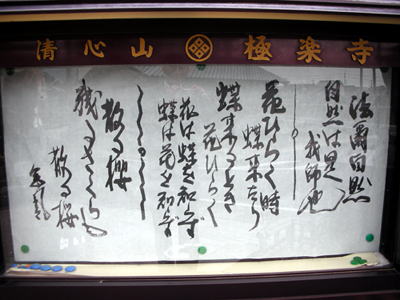 清心山 極楽寺
法爾自然
自然は是
我師也
花ひらく時
蝶来たり
蝶来るとき
花ひらく
花は蝶を知らず
蝶は花を知らず
散る櫻
残るさくらも
散る櫻